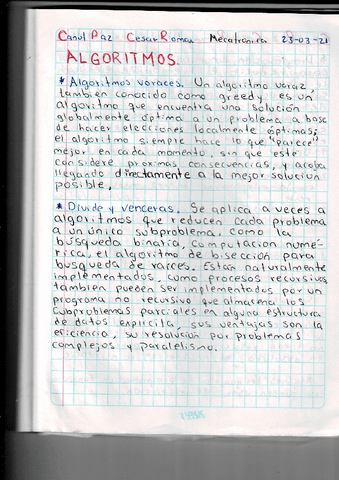 Canul Paz Cesar Roman Mecatronica 23-03-21
ALGORITMOS.
* Algoritmos voraces. Un algoritmo voraz,
tambien conocido como greedy es un
algoritmo que encuentra una solución
globalmente óptima a un problema a base
de hacer elecciones localmente óptimas;
el algoritmo siempre hace lo que "parece"
mejor en cada momento, sin que este
considere proximas consecuencias, y acaba
llegando directamente a la mejor solución
posible.
* Divide y venceras. Se aplica a veces a
algoritmos que reducen cada problema
a un único subproblema, como la
búsqueda binaria, computacion numé-
rica, el algoritmo de bisección para
busqueda de raices. Estan naturalmente
implementados, como procesos recursivos
tambien pueden ser implementados por un
programa no recursivo que almacena los
subproblemas parciales en alguna estructura
de datos explicita, sus ventajas son la
eficiencia, su resolusion por problemas
complejos y paralelismo.